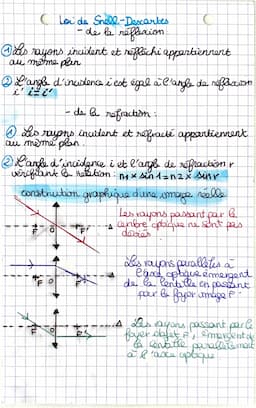 Loi de Snell-Descartes
- de la réflexion :
① Les rayons incident et réfléchi appartiennent
au même plan
② L'angle d'incidence i est égal à l'angle de réflexion
i' i = i'
- de la réfraction :
① Les rayons incident et réfracté appartiennent
au même plan.
② L'angle d'incidence i et l'angle de réfraction r
vérifient la relation : n1 × sin i = n2 × sin r
construction graphique d'une image réelle
Les rayons passant par le
centre optique ne sont pas
déviés
F O F' Δ
Les rayons parallèles à
l'axe optique émergent
de la lentille en passant
par le foyer image F'
F O F' Δ
Les rayons passant par le
foyer objet F, émergent de
la lentille parallèlement
à l'axe optique
F O F' Δ